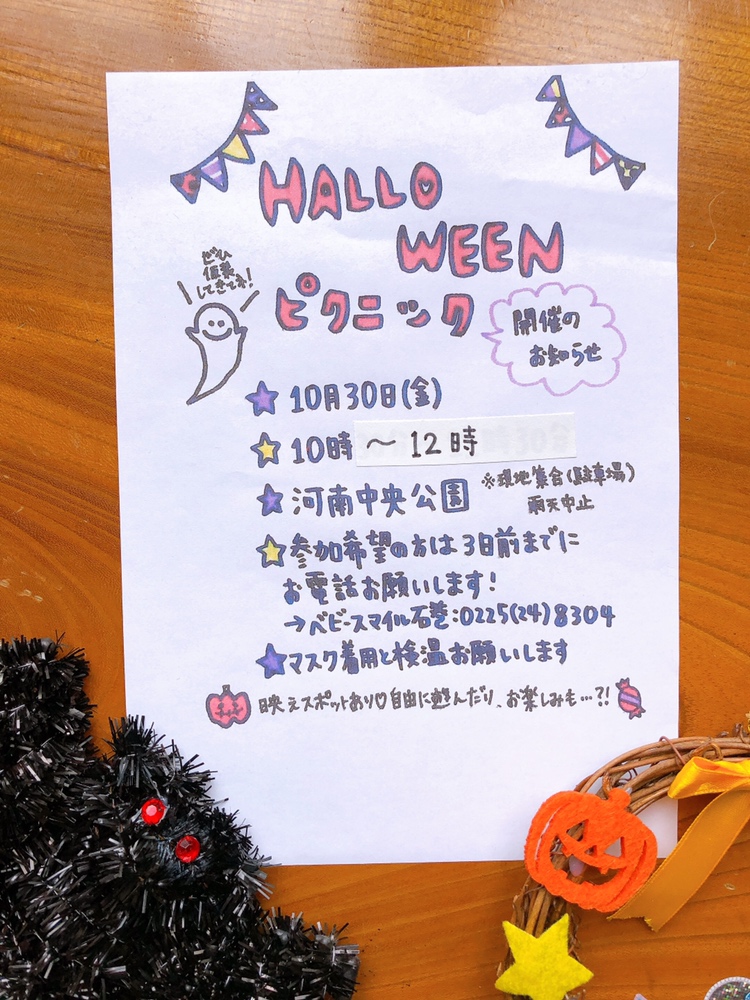 HALLO
WEEN
ぜひ
仮装
してきてネ!
ピクニック
開催の
お知らせ
10月30日(金)
10時 〜 12時
河南中央公園
※現地集合(駐車場)
雨天中止
参加希望の方は3日前までに
お電話お願いします!
→ベビースマイル石巻:0225(24)8304
マスク着用と検温お願いします
映えスポットあり♡自由に遊んだり、お楽しみも…?!